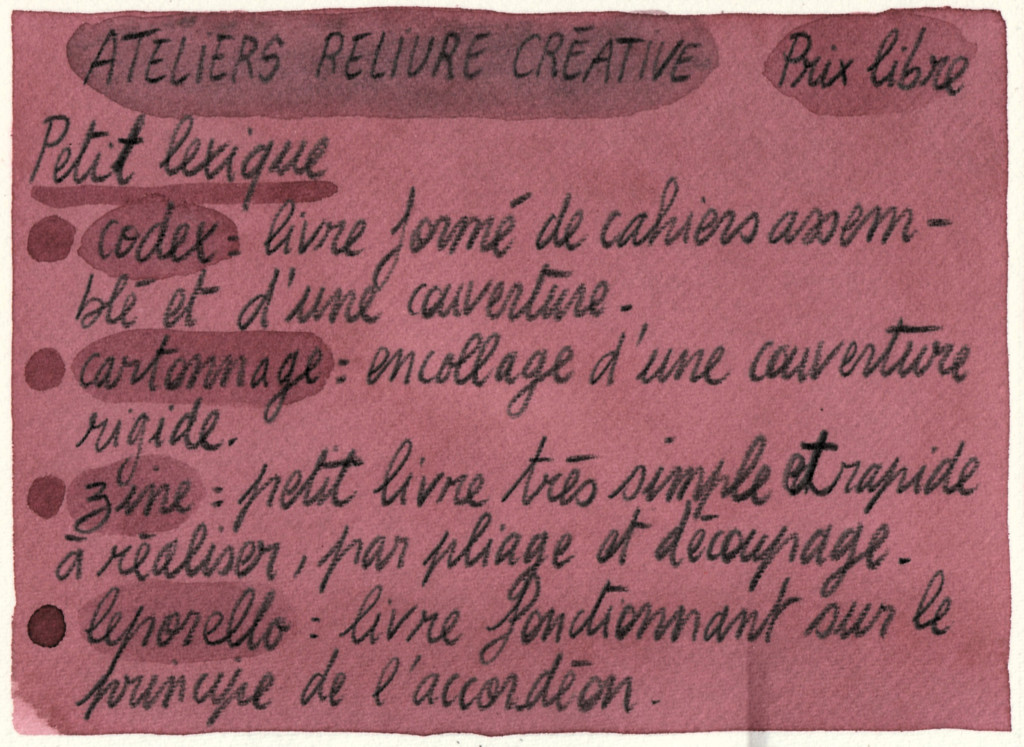 ATELIERS RELIURE CRÉATIVE Prix libre
Petit lexique
codex : livre formé de cahiers assem-
blé et d'une couverture.
cartonnage : encollage d'une couverture
rigide.
zine : petit livre très simple et rapide
à réaliser, par pliage et découpage.
leporello : livre fonctionnant sur le
principe de l'accordéon.